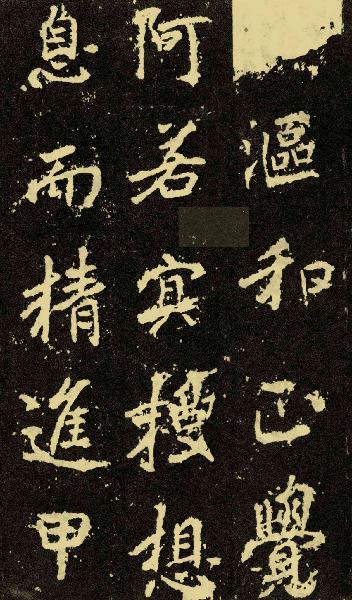 漚和正覺
阿若寘耰想
息而精進甲